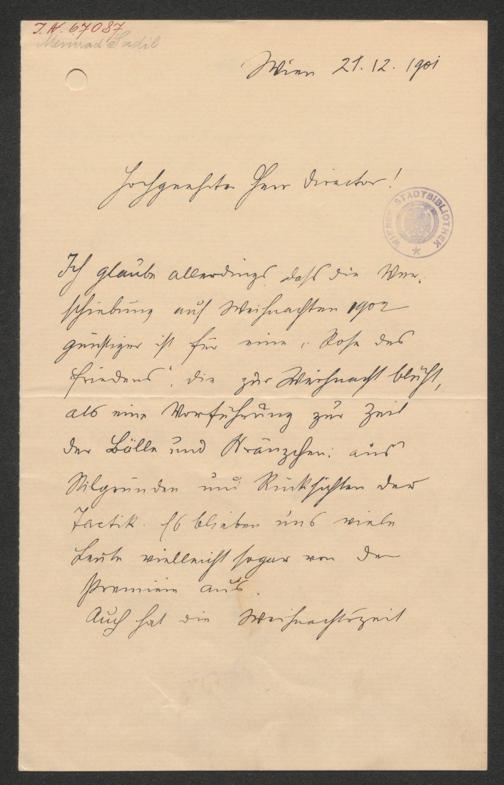 I.N. 67087
Meinrad Sadil
Wien 21.12.1901
Hochgeehrter Herr Director!
WIENER STADTBIBLIOTHEK
Ich glaube allerdings, dass die Ver-
schiebung auf Weihnachten 1902
günstiger ist für eine „Rose des
Friedens", die zur Weihnacht blüht,
als eine Vorführung zur Zeit
der Bälle und Kränzchen: aus
Stilgründen und Rücksichten der
Tactik. Es blieben uns viele
Leute vielleicht sogar von der
Premiere aus.
Auch hat die Weihnachtszeit